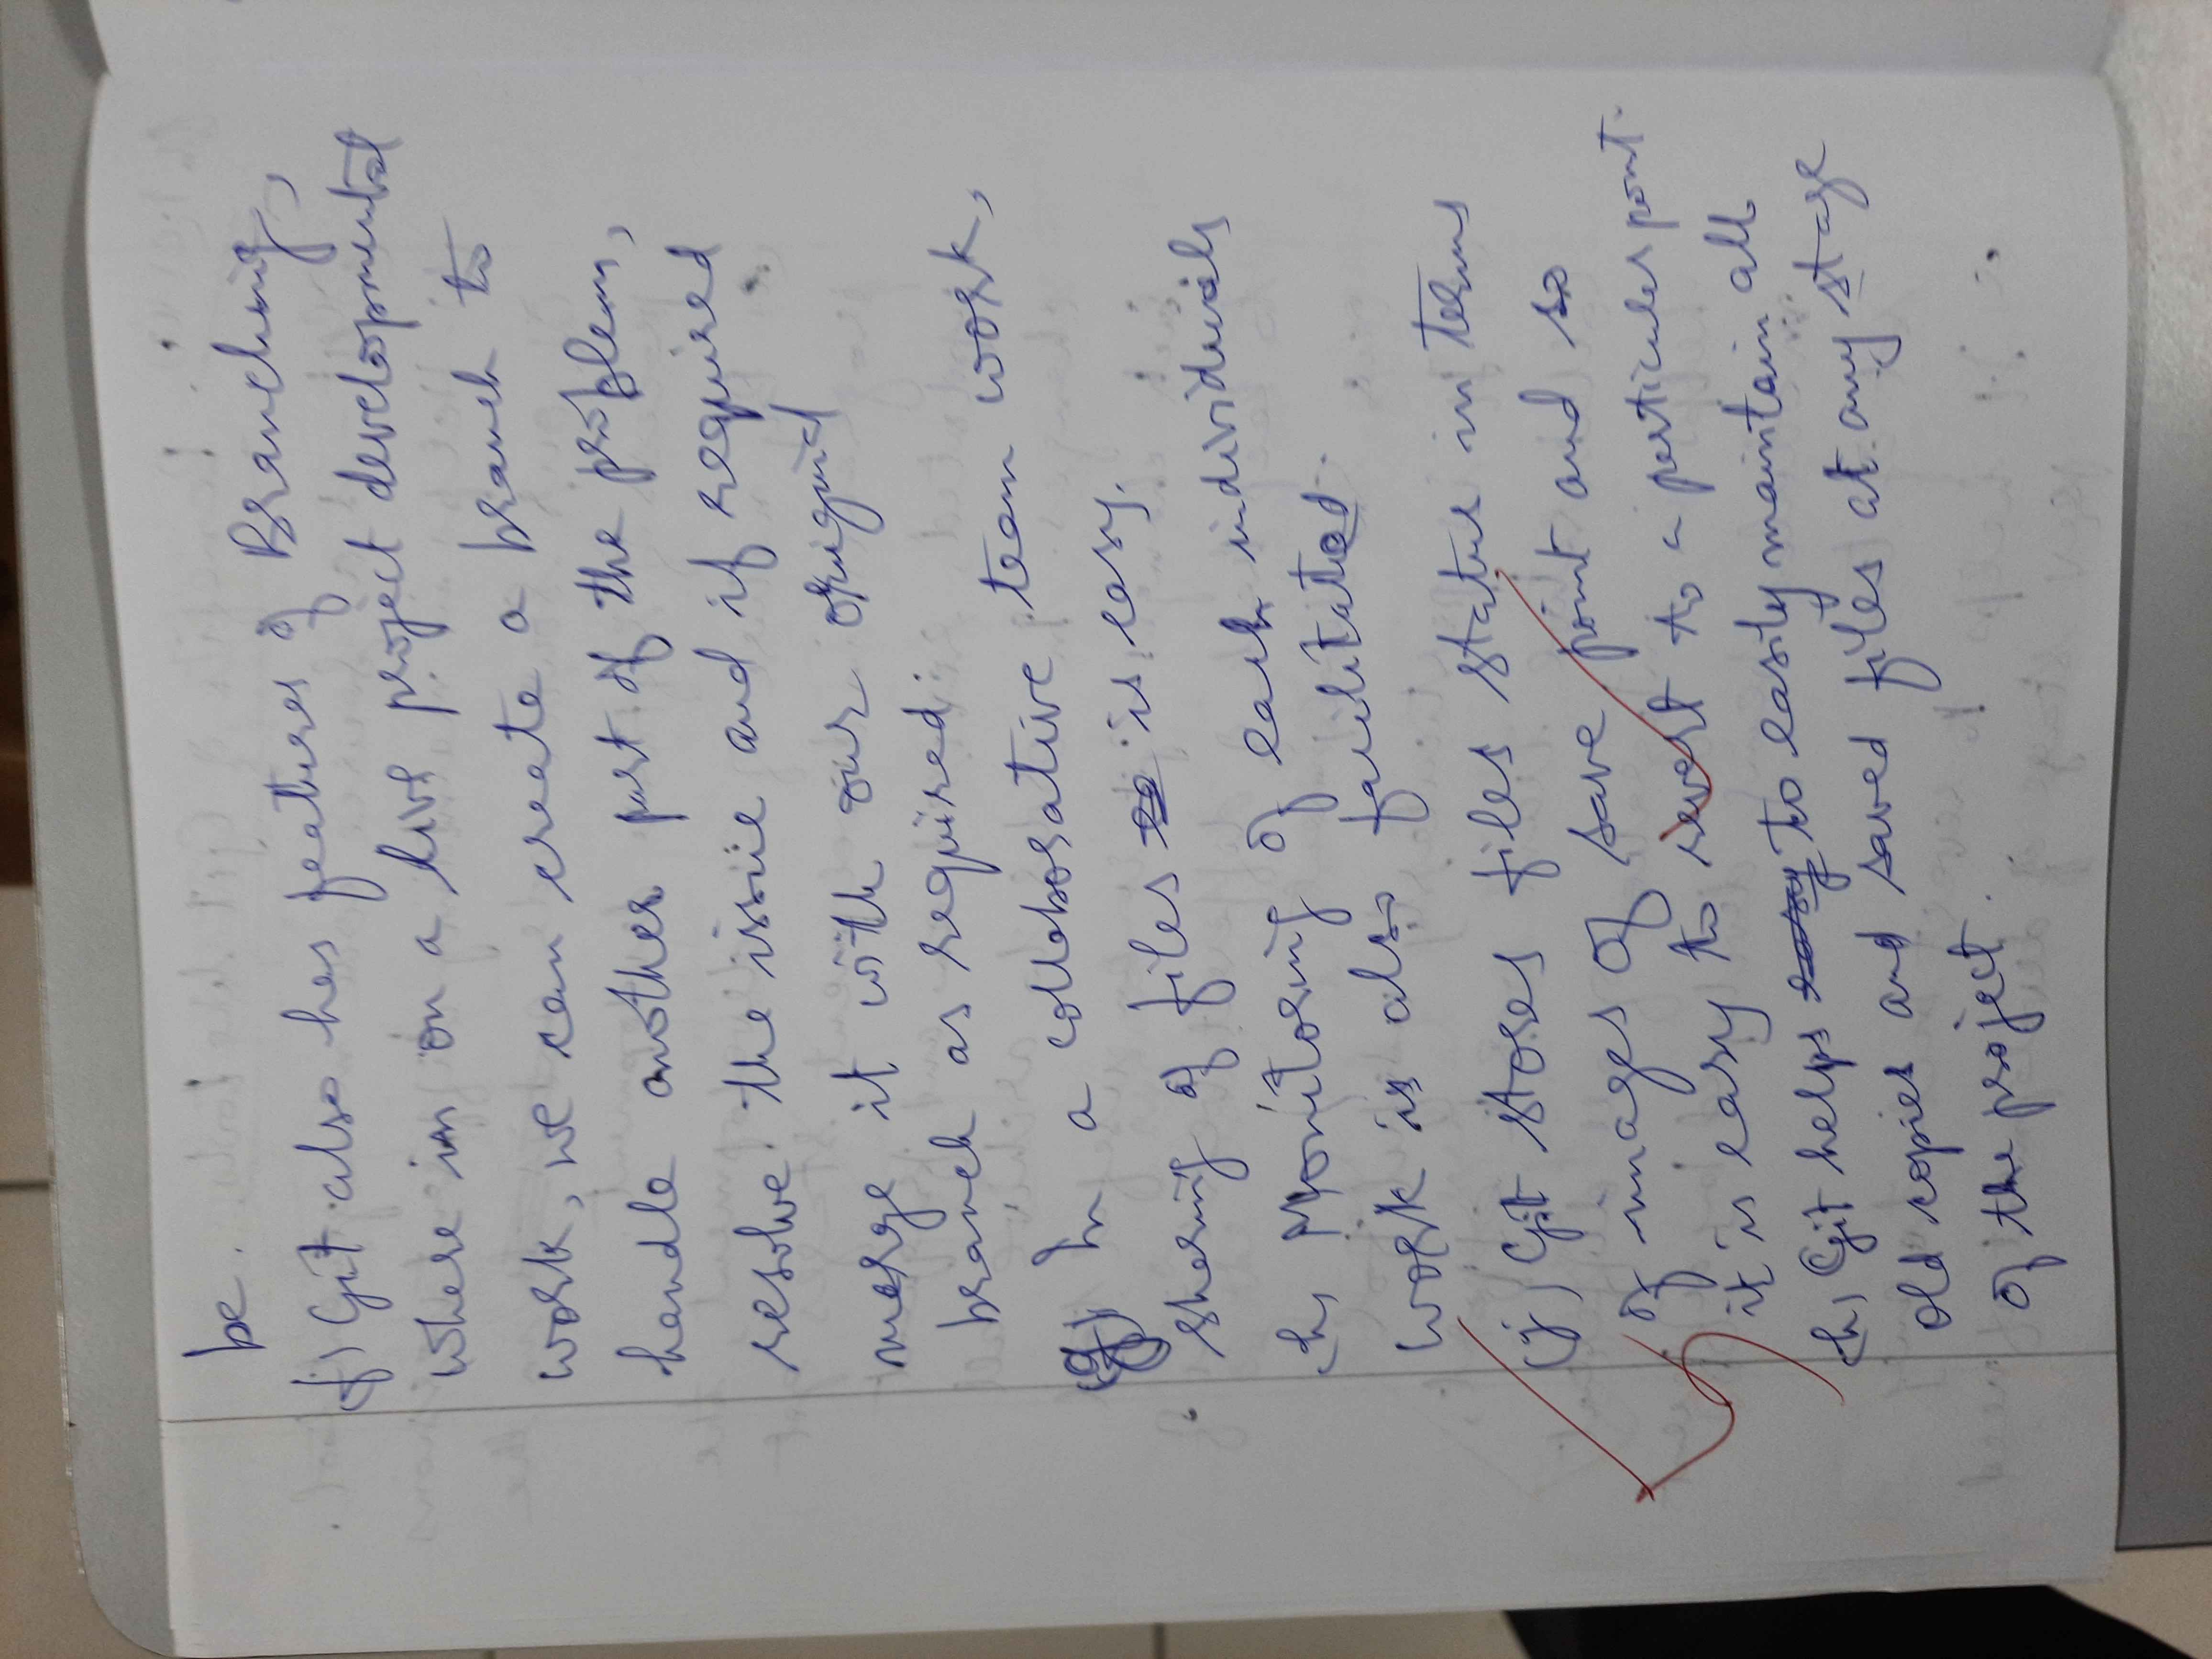 be.
(f) Git also has features of Branching,
where in on a live project developmental
work, we can create a branch to
handle another part of the problem,
resolve the issue and if required
merge it with our original
branch as required.
(g) In a collaborative team work,
sharing of files is easy.
(h) Monitoring of each individuals
work is also facilitated.
(j) Git stores files status in terms
of images of save point and so
it is easy to revert to a particular point.
(h) Git helps easy to easily maintain all
old copies and saved files at any stage
of the project.